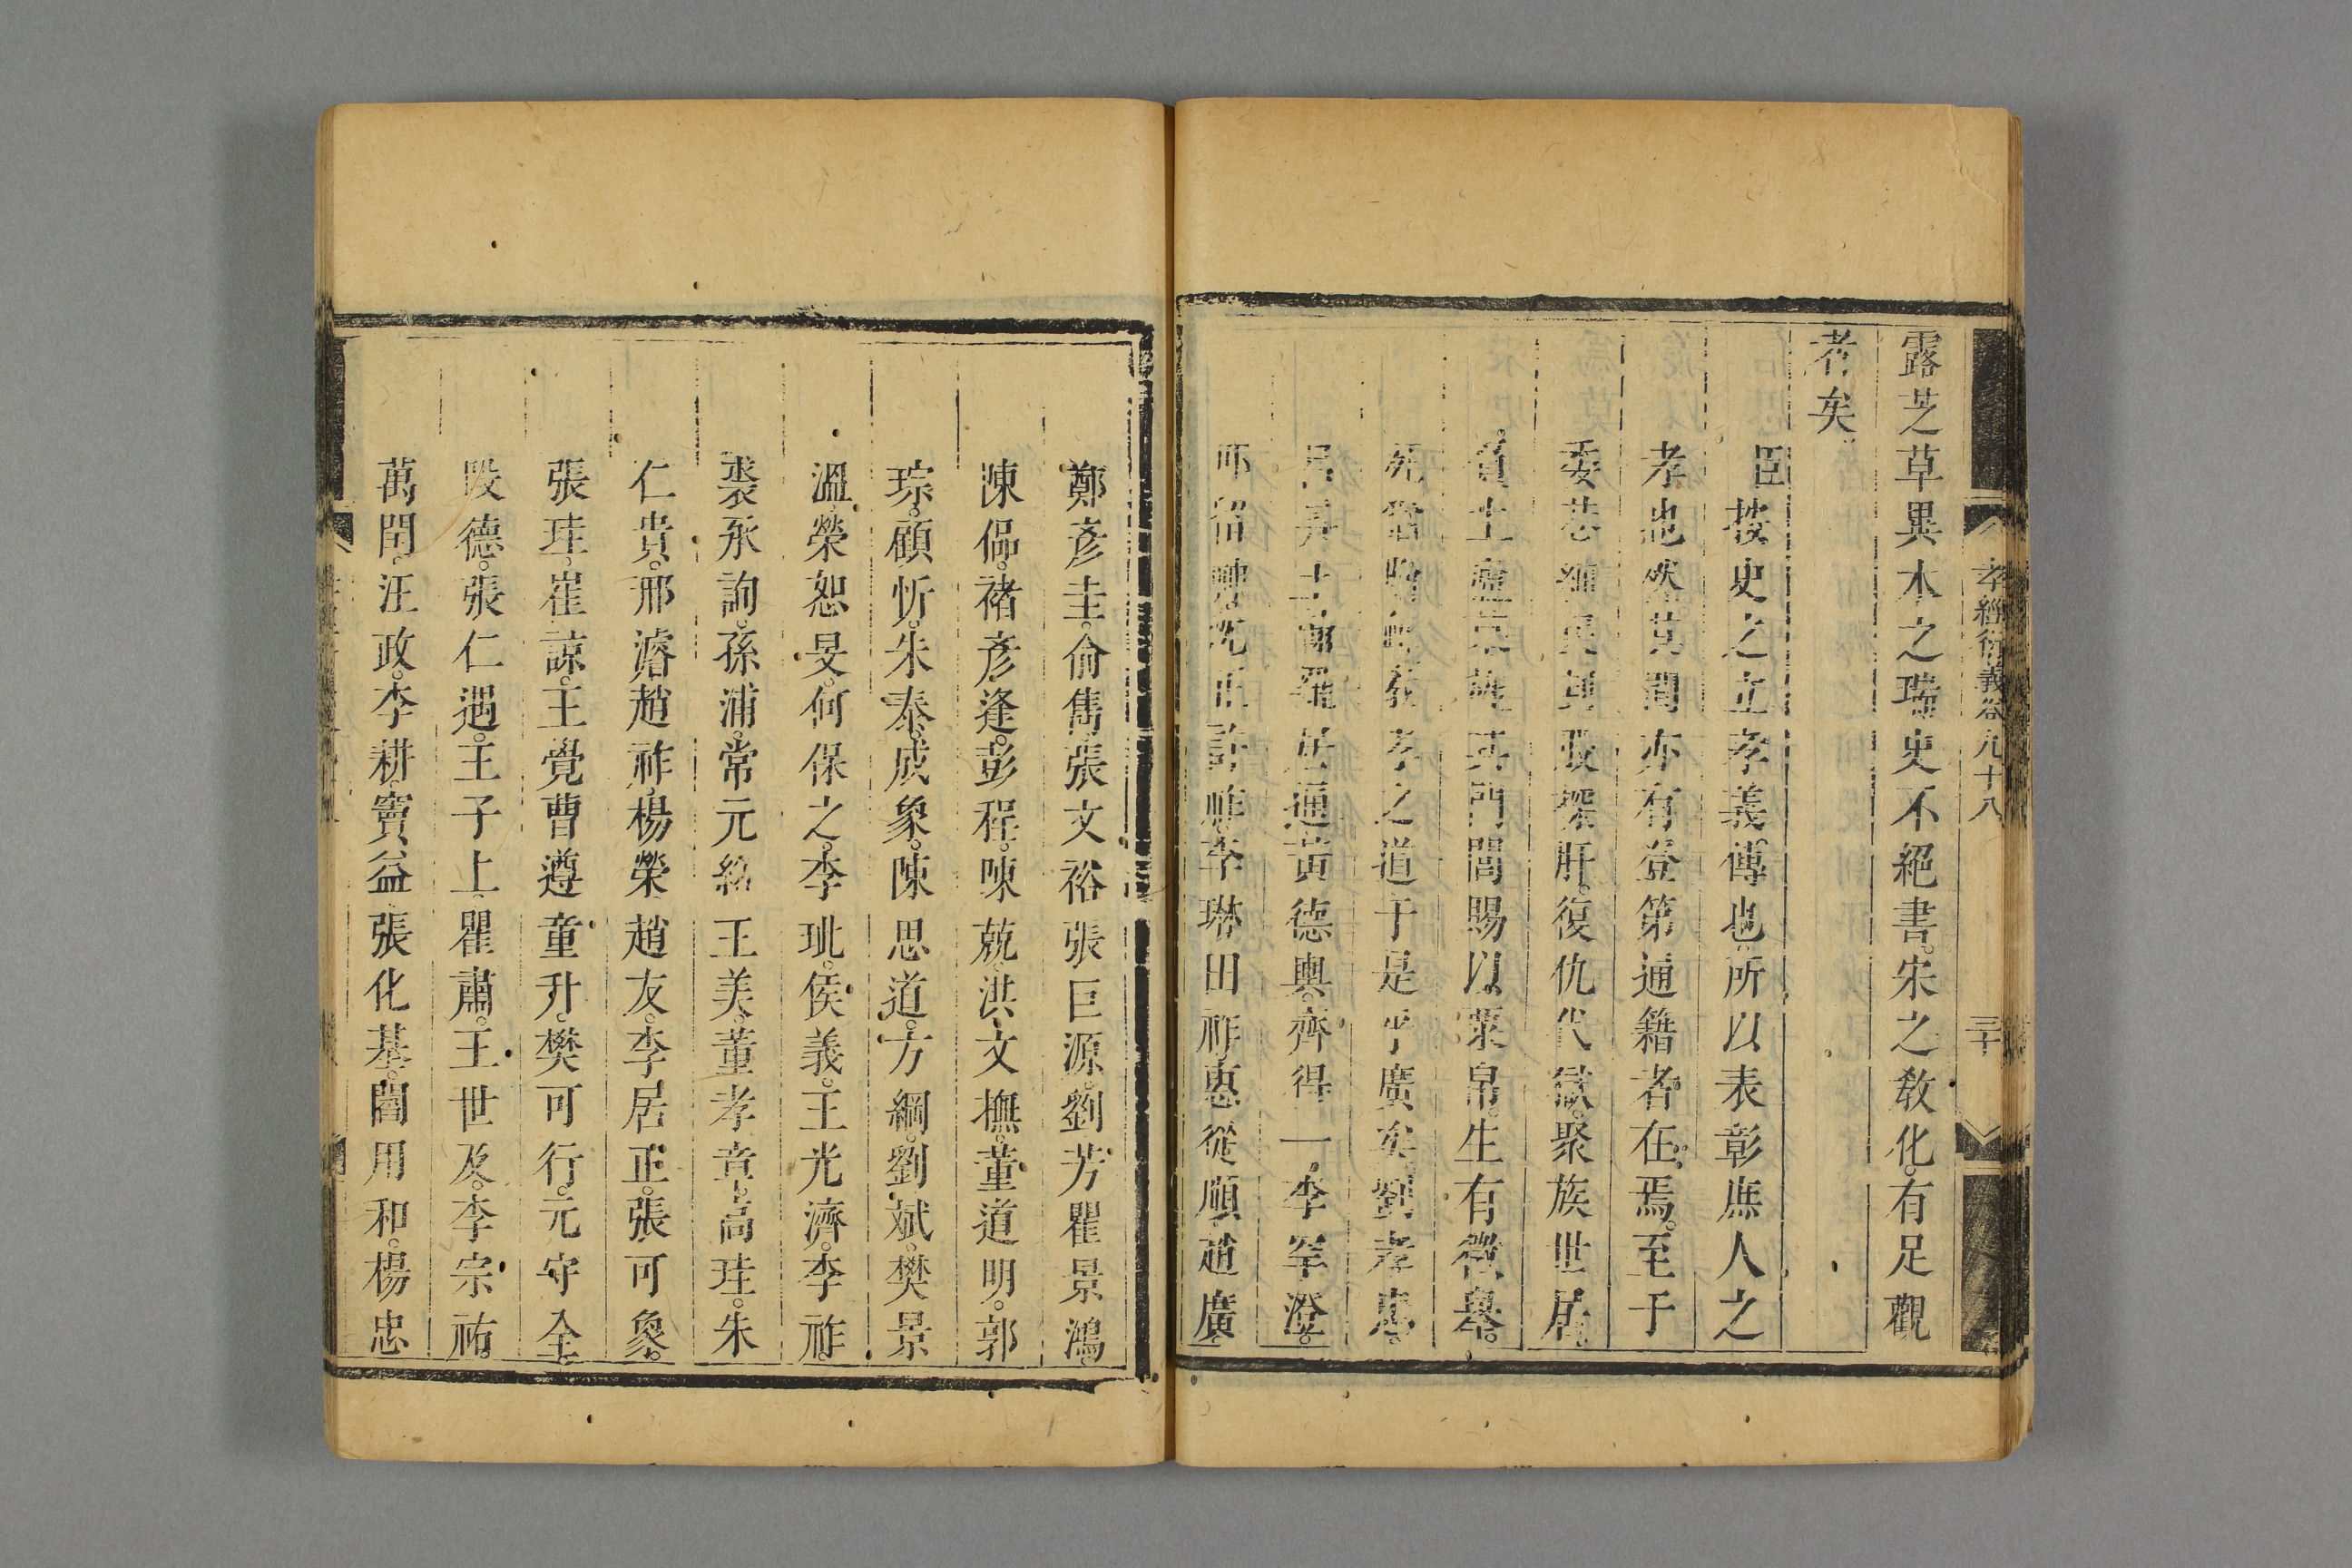 孝經衍義卷九十八
三十
露芝草異木之瑞史不絕書。宋之教化。有足觀
者矣
臣按史之立孝義傳也。所以表彰庶人之
孝也然其間亦有登第通籍者在焉。至于
委巷細民刲股探肝。復仇代獄。聚族世居
旌其門閭賜以粟帛。生有徵舉。
孝之道于是乎廣矣劉孝忠。
呂昇王翰羅居通黃德輿。齊得一李罕澄。
邢留神沈正許祚李琳田祚惠從順趙廣
鄭彥圭。俞雋張文裕張巨源。劉芳瞿景鴻。
陳侃。褚彥逢。彭程。陳兢。洪文撫。董道明。郭
琮。顧忻。朱泰。成象。陳思道。方綱。劉斌。樊景
溫。榮恕旻。何保之。李玭。侯義。王光濟。李祚。
裘承詢。孫浦。常元紹王美。董孝章。高珪。朱
仁貴。邢濬趙祚。楊榮趙友。李居正。張可象。
張珪。崔諒。王覺曹遵童升。樊可行。元守全
段德。張仁遇。王子上。瞿肅。王世及。李宗祐。
萬閏。汪政。李耕。竇益。張化基。閻用和。楊忠